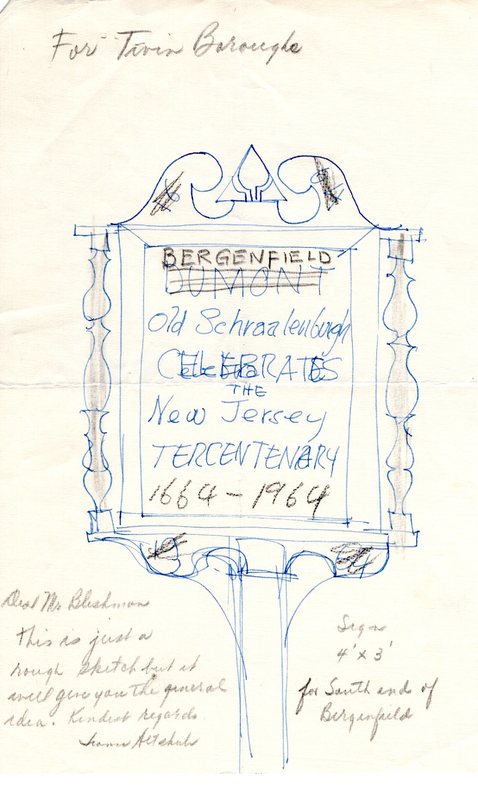 For Twin Boroughs
BERGENFIELD
DUMONT
Old Schraalenburgh
CELEBRATES
THE
New Jersey
TERCENTENARY
1664 - 1964
Dear Mr
this is just a
rough sketch but it
will give you the general
idea. Kindest regards.
Sign
4' x 3'
for South end of
Bergenfield